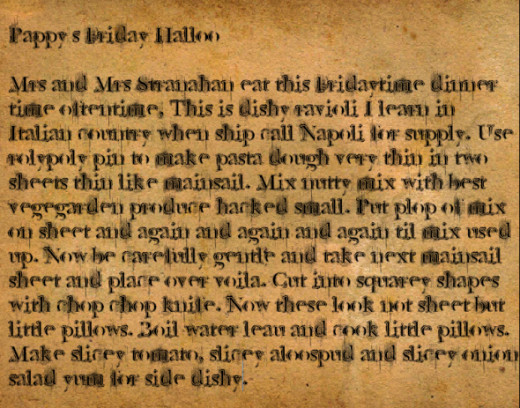 Pappy s Friday Halloo
Mrs and Mrs Stranahan eat this Fridaytime dinner
time oftentime, This is dishy ravioli I learn in
Italian country when ship call Napoli for supply. Use
rolypoly pin to make pasta dough very thin in two
sheets thin like mainsail. Mix nutty mix with best
vegegarden produce hacked small. Put plop of mix
on sheet and again and again and again til mix used
up. Now be carefully gentle and take next mainsail
sheet and place over voila. Cut into squarey shapes
with chop chop knife. Now these look not sheet but
little pillows. Boil water leau and cook little pillows.
Make slicey tomato, slicey aloospud and slicey onion
salad yum for side dishy.